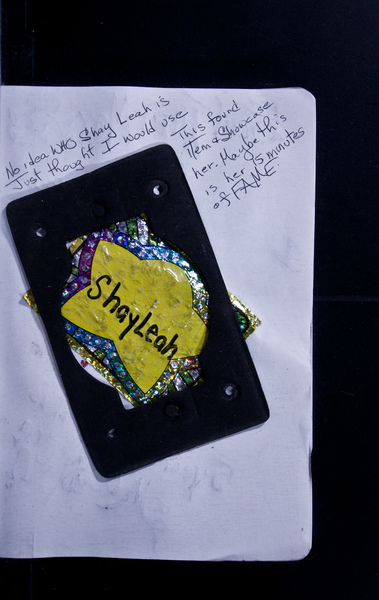 No idea WHO Shay Leah is
Just thought I would use
This found
ITem & Showcase
her. Maybe this
is her 15 minutes
of FAME.
ShayLeah